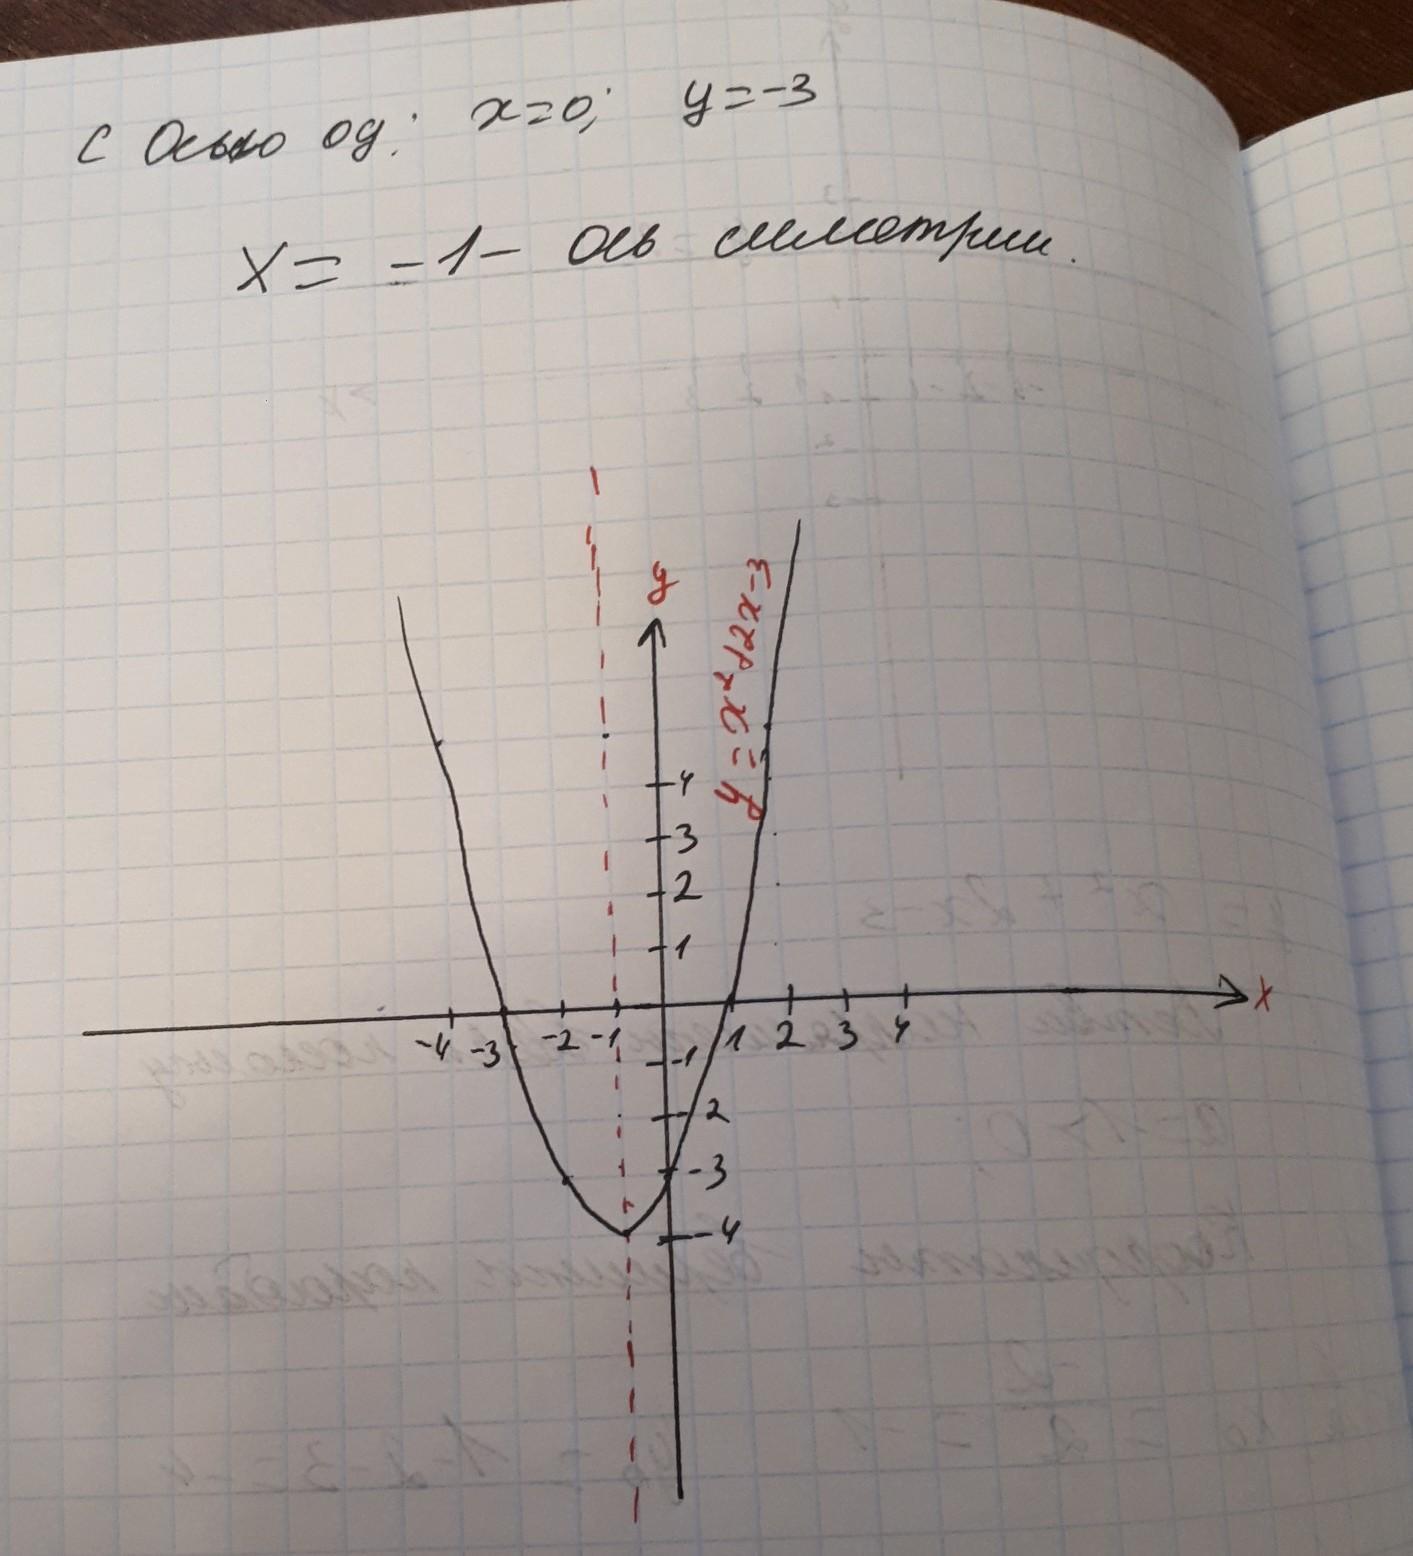 с Осью оу: x=0; y=-3
X= -1- ось симетрии.
y
y=x²+2x-3
4
3
2
1
-4 -3 -2 -1 1 2 3 4 x
-1
-2
-3
-4